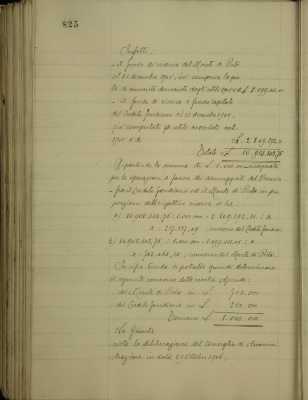 825
Infatti:
- il fondo di riserva del Monte di Pietà
al 31 dicembre 1905, ivi compresa la quo
ta di aumento derivante dagli utili 1905 è di £ 8.099.111,
- il fondo di riserva e fondo capitale
del Credito fondiario al 31 dicembre 1905,
già computati gli utili accertati nel
1905 è di £. 2.809.292,
Totale £ 10.908.403,78
Ripartendo la somma di £ 1.000.000 assegnata
per le operazioni a favore dei danneggiati del
- fra il Credito fondiario ed il Monte di Pietà in pro
porzione delle rispettive riserve si ha:
a) 10.908.403,78 : 1.000.000 = 2.809.292, : x
x = 257.537,09 , concorso del Credito fondiar.
b) 10.908.403,78 : 1.000.000 = 8.099.111, : x
x = 742.462, : concorso del Monte di Pietà.
In cifra tonda si potrebbe quindi determinare
il seguente concorso delle nostre Aziende:
del Monte di Pietà in £ 750.000
del Credito fondiario in £ 250.000
Tornano £ 1.000.000
La Giunta
vista la deliberazione del Consiglio di Ammini
strazione in data 29 Ottobre 1906;